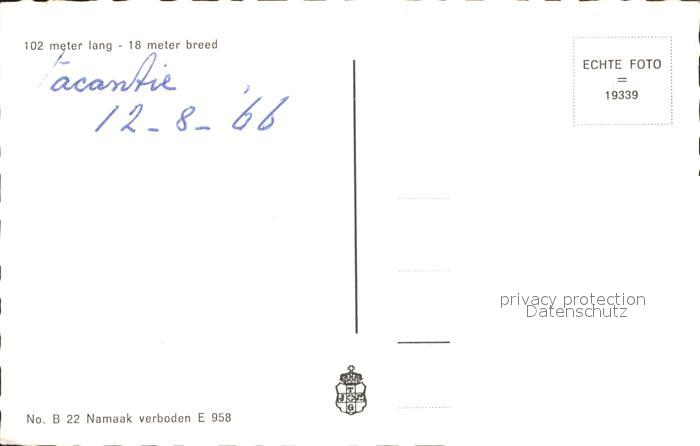 102 meter lang - 18 meter breed
Vacantie
12-8-'66
ECHTE FOTO
=
19339
privacy protection
Datenschutz
T
J F
G
No. B 22 Namaak verboden E 958